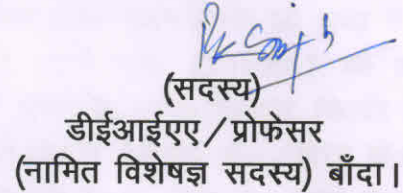 (सदस्य)
डीईआईएए / प्रोफेसर
(नामित विशेषज्ञ सदस्य) बाँदा।